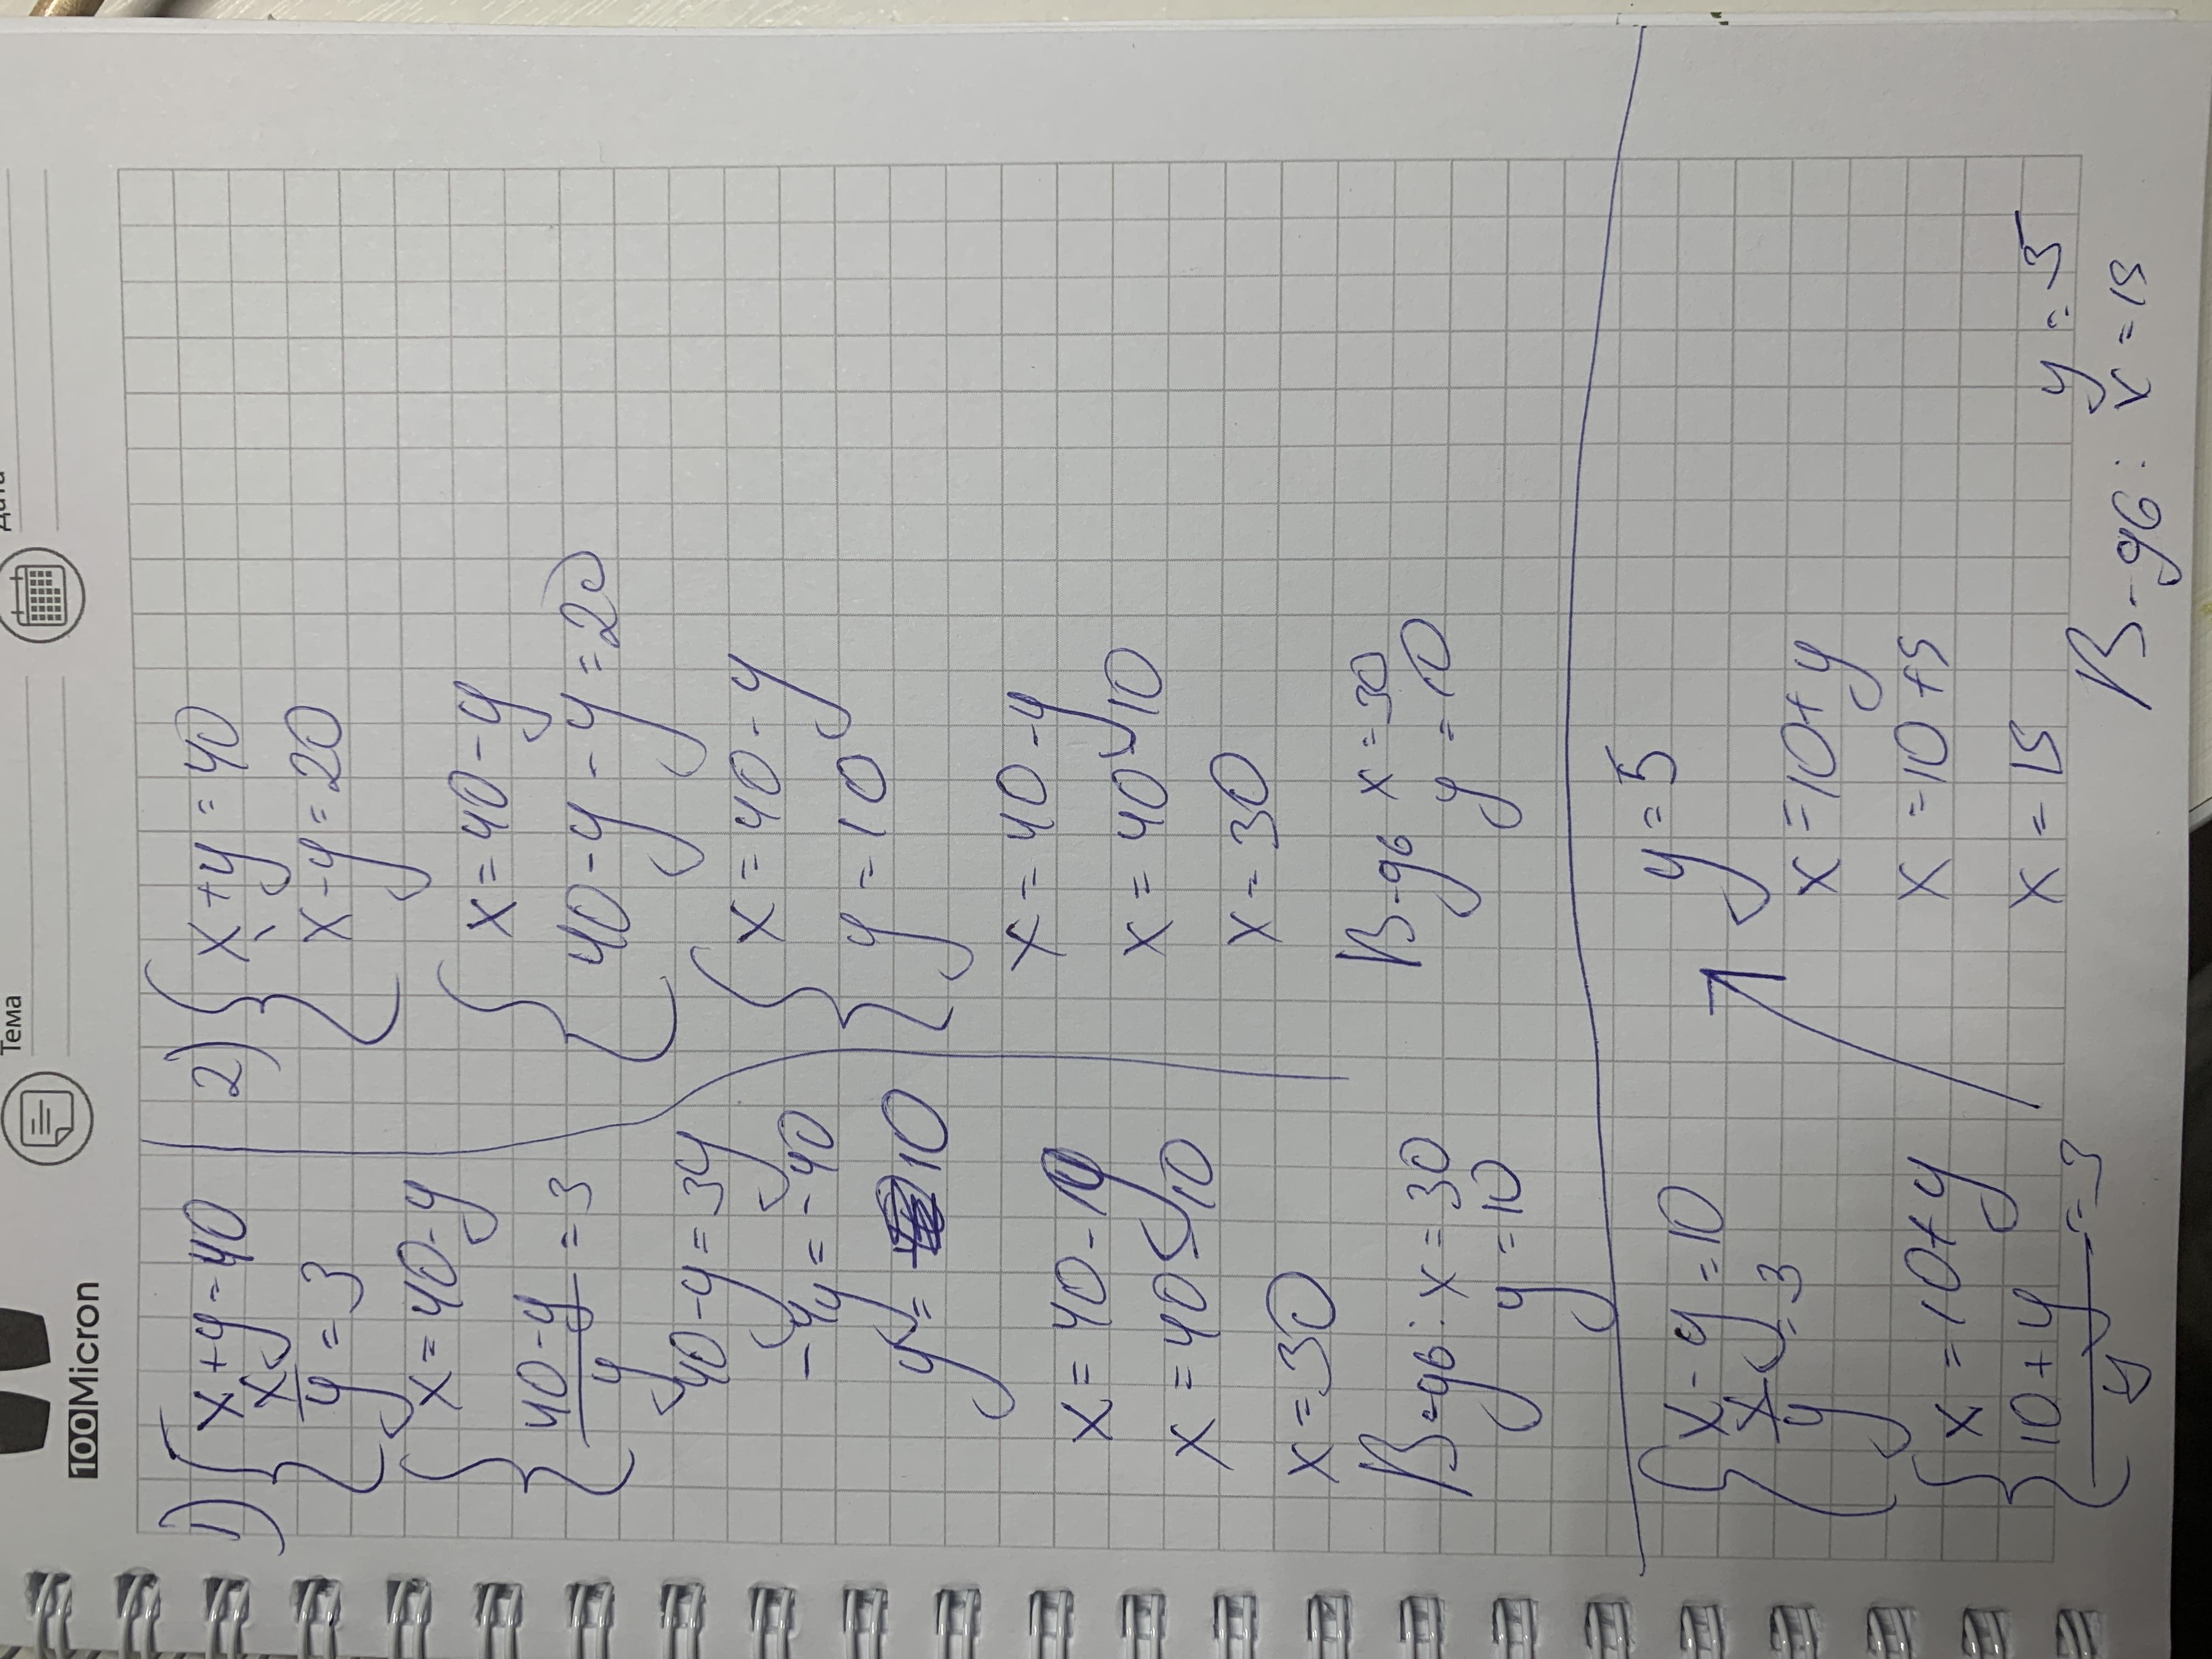 100Micron
Тема
Дата
1) { x+y=40
x/y=3
{ x=40-y
(40-y)/y=3
40-y=3y
-4y=-40
y=10
x=40-y
x=40-10
x=30
В-дь: x=30
y=10
2) { x+y=40
x-y=20
{ x=40-y
40-y-y=20
{ x=40-y
y=10
x=40-y
x=40-10
x=30
В-дь x=30
y=10
{ x-y=10
x/y=3
{ x=10+y
(10+y)/y=3
y=5
x=10+y
x=10+5
x=15
В-дь: y=5
x=15